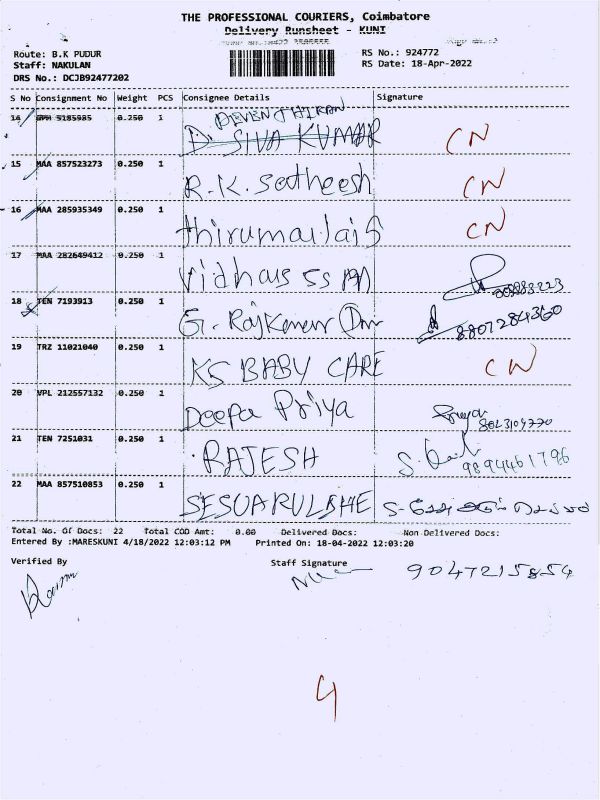 THE PROFESSIONAL COURIERS, Coimbatore
Delivery Runsheet - KUNI
Route: B.K PUDUR RS No.: 924772
Staff: NAKULAN RS Date: 18-Apr-2022
DRS No.: DCJB92477202
S No Consignment No Weight PCS Consignee Details Signature
DEVENTHIRAN
14 5185935 0.250 1 D. SIVA KUMAR CN
15 MAA 857523273 0.250 1 R.K. Satheesh CN
16 MAA 285935349 0.250 1 thirumailai S CN
17 MAA 282649412 0.250 1
18 TEN 7193913 0.250 1 G. 8807284360
19 TRZ 11021040 0.250 1 KS BABY CARE CN
20 VPL 212557132 0.250 1 Deepa Priya
21 TEN 7251031 0.250 1 RAJESH 9894461796
22 MAA 857510853 0.250 1 SESUARULBHE
Total No. Of Docs: 22 Total COD Amt: 0.00 Delivered Docs: Non Delivered Docs:
Entered By :MARESKUNI 4/18/2022 12:03:12 PM Printed On: 18-04-2022 12:03:20
Verified By Staff Signature 9047215854
4